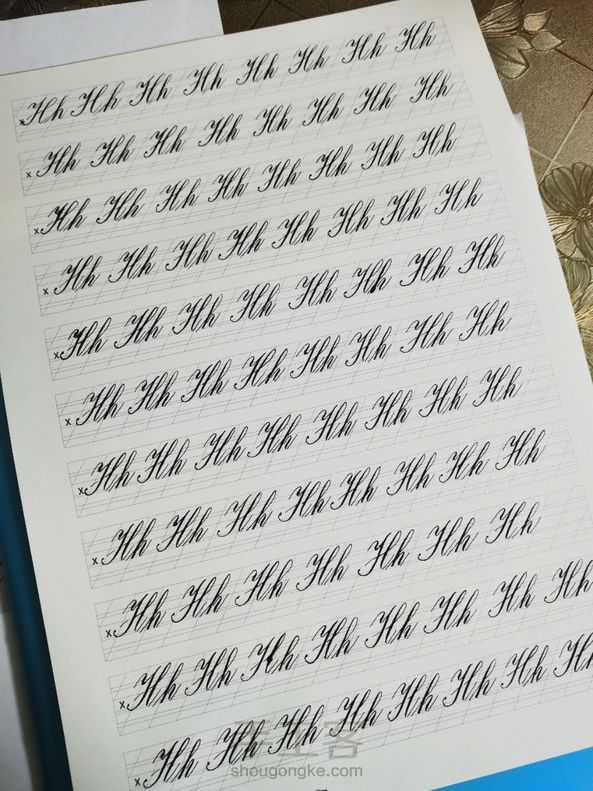 x Hh Hh Hh Hh Hh Hh Hh Hh
x Hh Hh Hh Hh Hh Hh Hh Hh
x Hh Hh Hh Hh Hh Hh Hh Hh
x Hh Hh Hh Hh Hh Hh Hh Hh
x Hh Hh Hh Hh Hh Hh Hh Hh
x Hh Hh Hh Hh Hh Hh Hh Hh
x Hh Hh Hh Hh Hh Hh Hh Hh
x Hh Hh Hh Hh Hh Hh Hh Hh
x Hh Hh Hh Hh Hh Hh Hh
x Hh Hh Hh Hh Hh Hh Hh Hh
x Hh Hh Hh Hh Hh Hh Hh Hh
shougongke.com